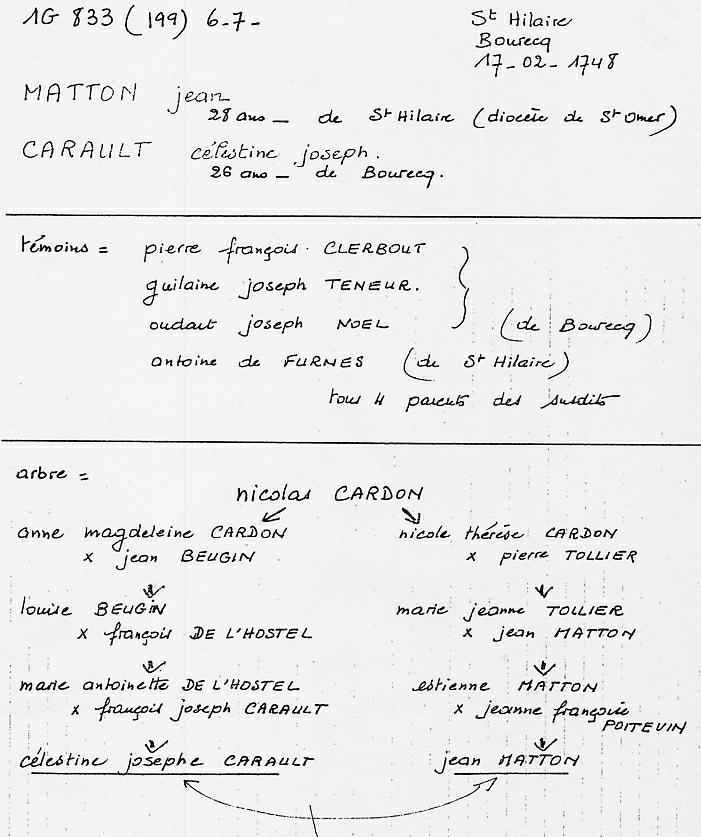 1G 833 (199) 6-7-
St Hilaire
Bourecq
17-02-1748
MATTON jean
28 ans — de St Hilaire (diocèse de St Omer)
CARAULT célestine joseph.
26 ans — de Bourecq.
témoins = pierre françois CLERBOUT
guilaine joseph TENEUR.
oudart joseph NOEL (de Bourecq)
antoine de FURNES (de St Hilaire)
tous 4 parents des susdits
arbre =
nicolas CARDON
anne magdeleine CARDON
x jean BEUGIN
nicole thérèse CARDON
x pierre TOLLIER
louise BEUGIN
x françois DE L'HOSTEL
marie jeanne TOLLIER
x jean MATTON
marie antoinette DE L'HOSTEL
x françois joseph CARAULT
estienne MATTON
x jeanne françoise
POITEVIN
célestine josephe CARAULT
jean MATTON